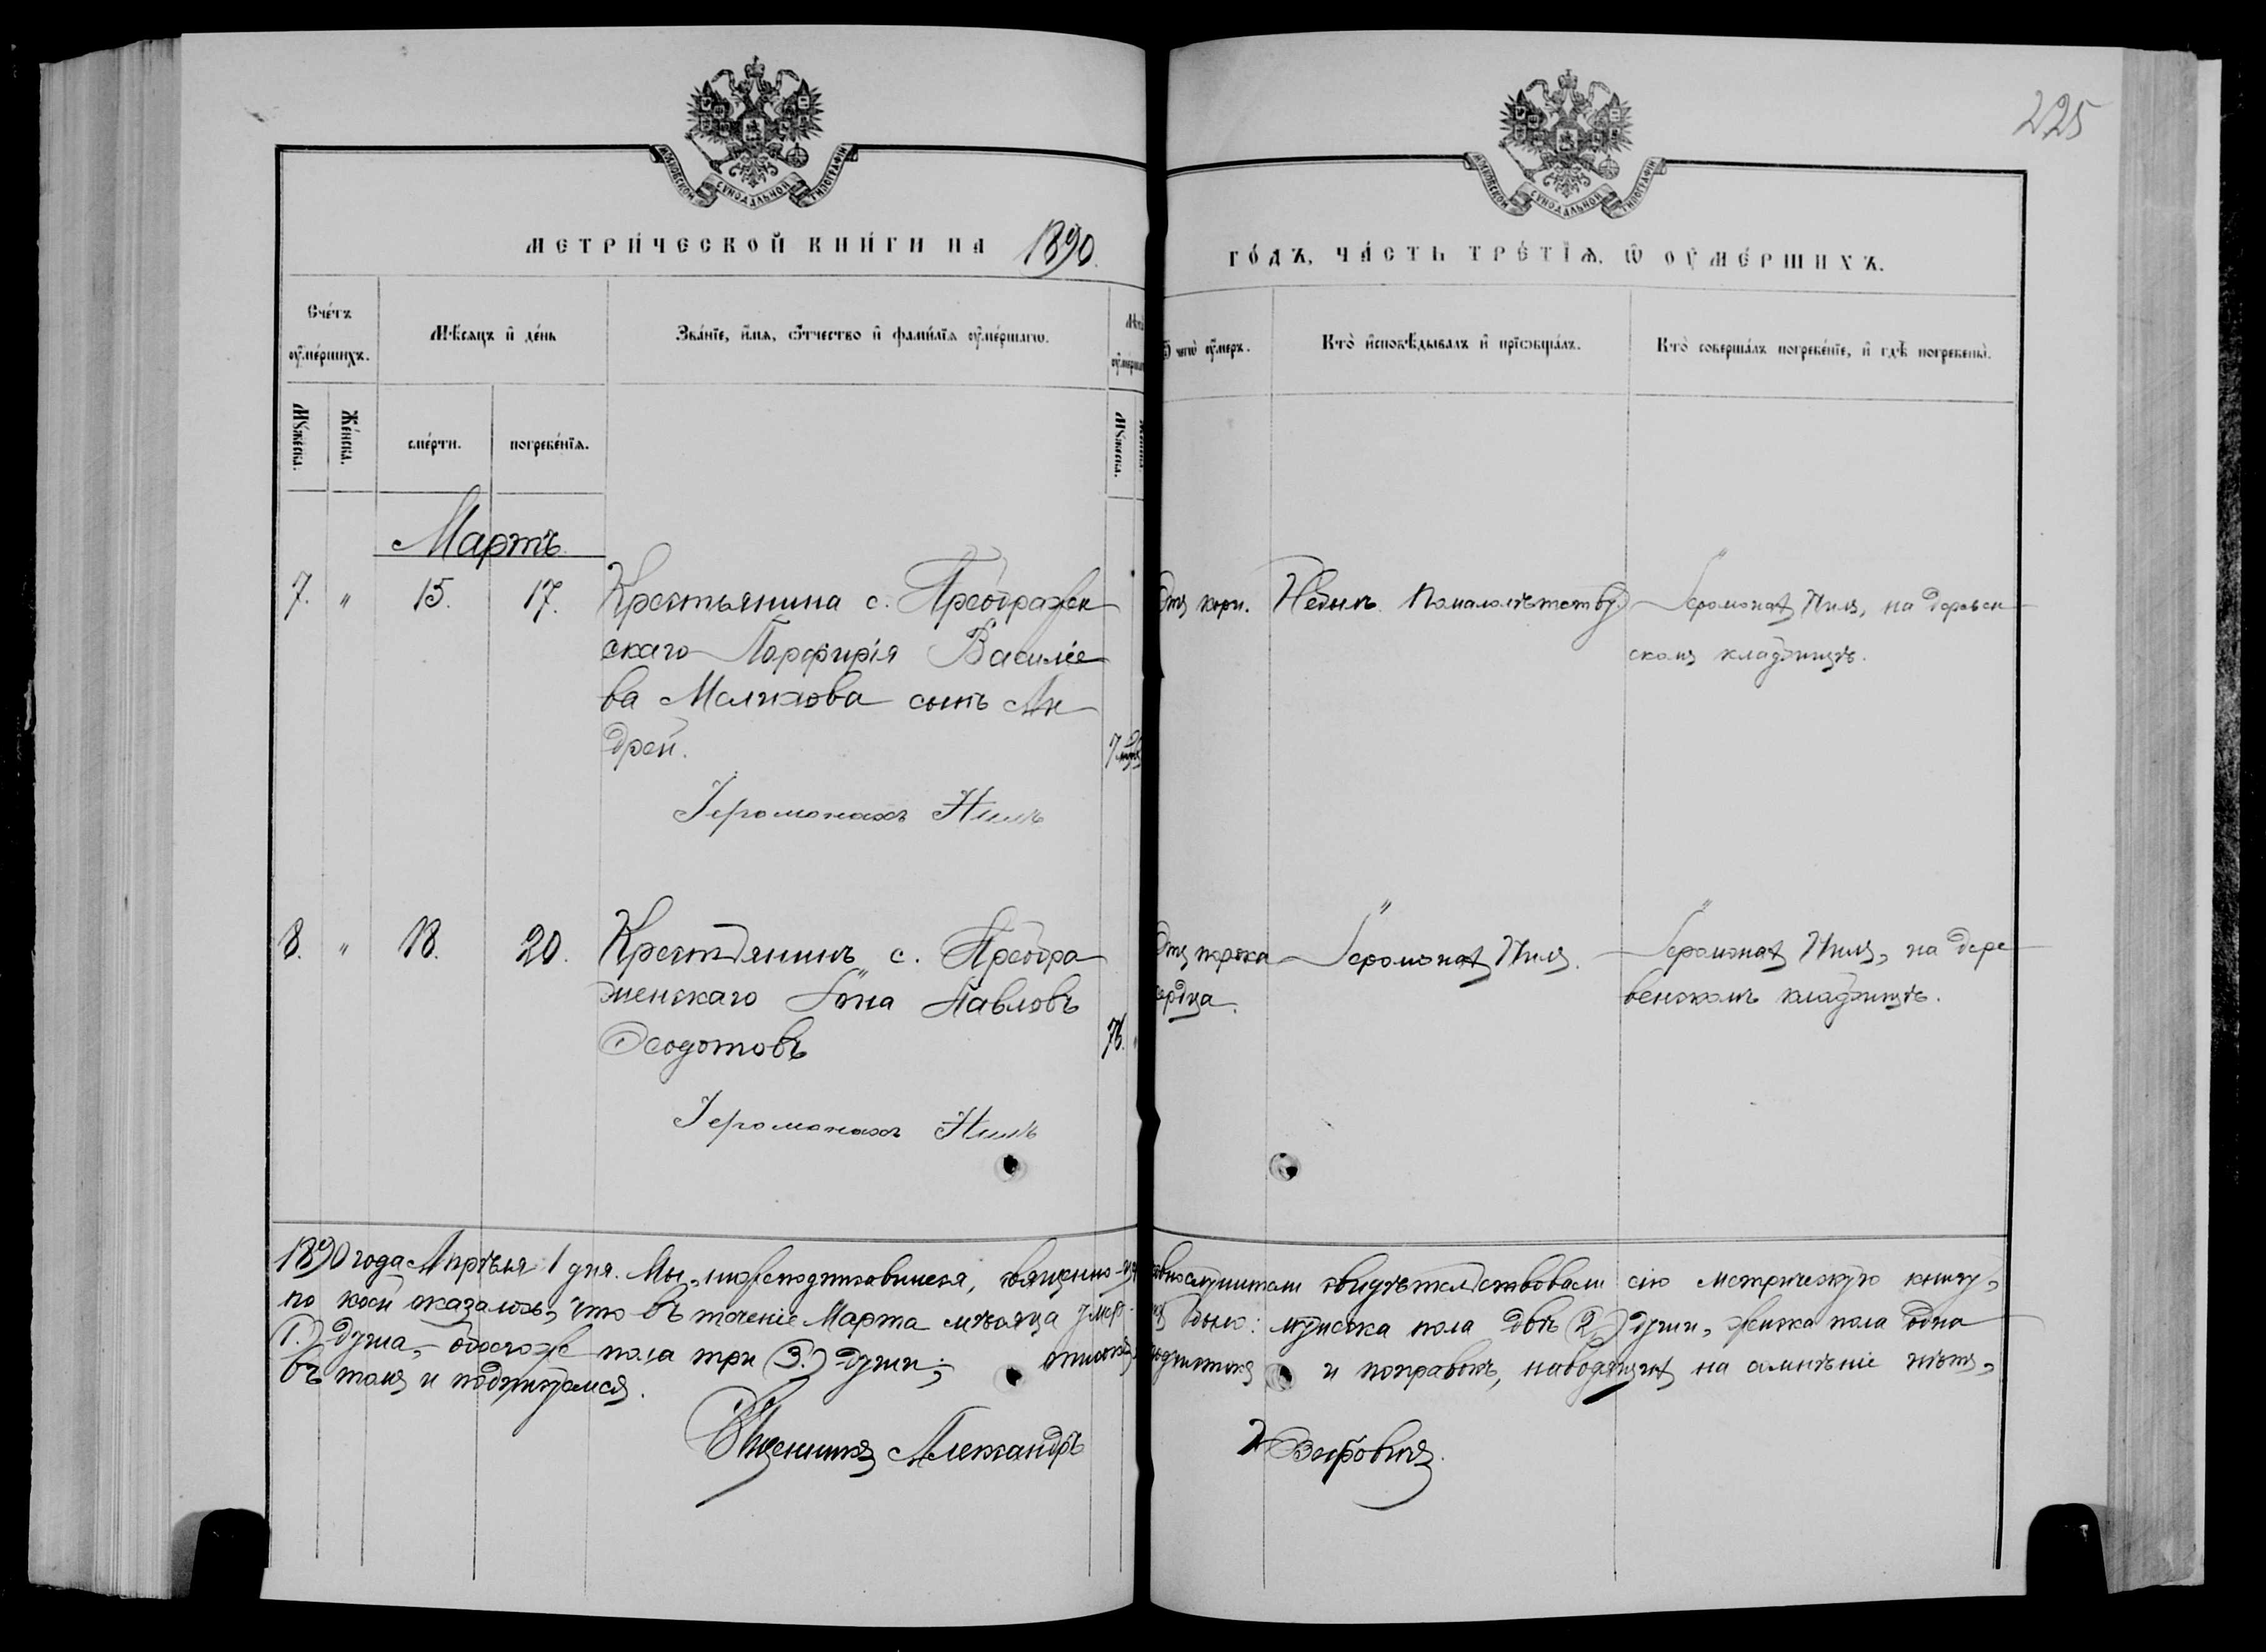 225
МОСКОВСКОЙ СѴНОДАЛЬНОЙ ТИПОГРАФІИ
МОСКОВСКОЙ СѴНОДАЛЬНОЙ ТИПОГРАФІИ
МЕТРИ́ЧЕСКОЙ КНИ́ГИ НА 1890.
ГО́ДЪ, ЧА́СТЬ ТРЕ́ТІѦ, Ѡ ОУМЕ́РШИХЪ.
Сче́тъ оуме́ршихъ.
Мꙋ́жеска.
Же́нска.
Мѣ́сяцъ и де́нь
сме́рти.
погребе́нїѧ.
Зва́нїе, и́мѧ, ѻ́тчество и фами́лїѧ оуме́ршагѡ.
Мꙋ́жеска.
Ѿ чегѡ̀ оу́меръ.
Кто̀ исповѣ́дывалъ и прїѡбща́лъ.
Кто̀ соверша́лъ погребе́нїе, и гдѣ̀ погребены̀.
Мартъ
7. " 15. 17. Крестьянина с. Преображен
скаго Порфирія Василіе
ва Маликова сынъ Ан
дрей.
7
Отъ кори.
Небылъ помалолѣтству.
Іеромонахъ Нилъ, на деревен
скомъ кладбищѣ.
Іеромонахъ Нилъ
8. " 18. 20. Крестьянинъ с. Преобра
женскаго Іона Павловъ
Ѳеодотовъ
76.
Отъ порока
сердца.
Іеромонахъ Нилъ.
Іеромонахъ Нилъ, на дере
венскомъ кладбищѣ.
Іеромонахъ Нилъ
1890 года Апрѣля 1 дня. Мы, нижеподписавшіеся, священно-церковнослужители свидѣтельствовали сію метрическую книгу,
по коей оказалось, что въ теченіе Марта мѣсяца умершихъ было: мужска пола двѣ (2.) души, женска пола одна
(1.) душа, обоегоже пола три (3.) души; описокъ подчистокъ и поправокъ, наводящихъ на сомнѣніе нѣтъ,
въ томъ и подписуемся.
Священникъ Александръ